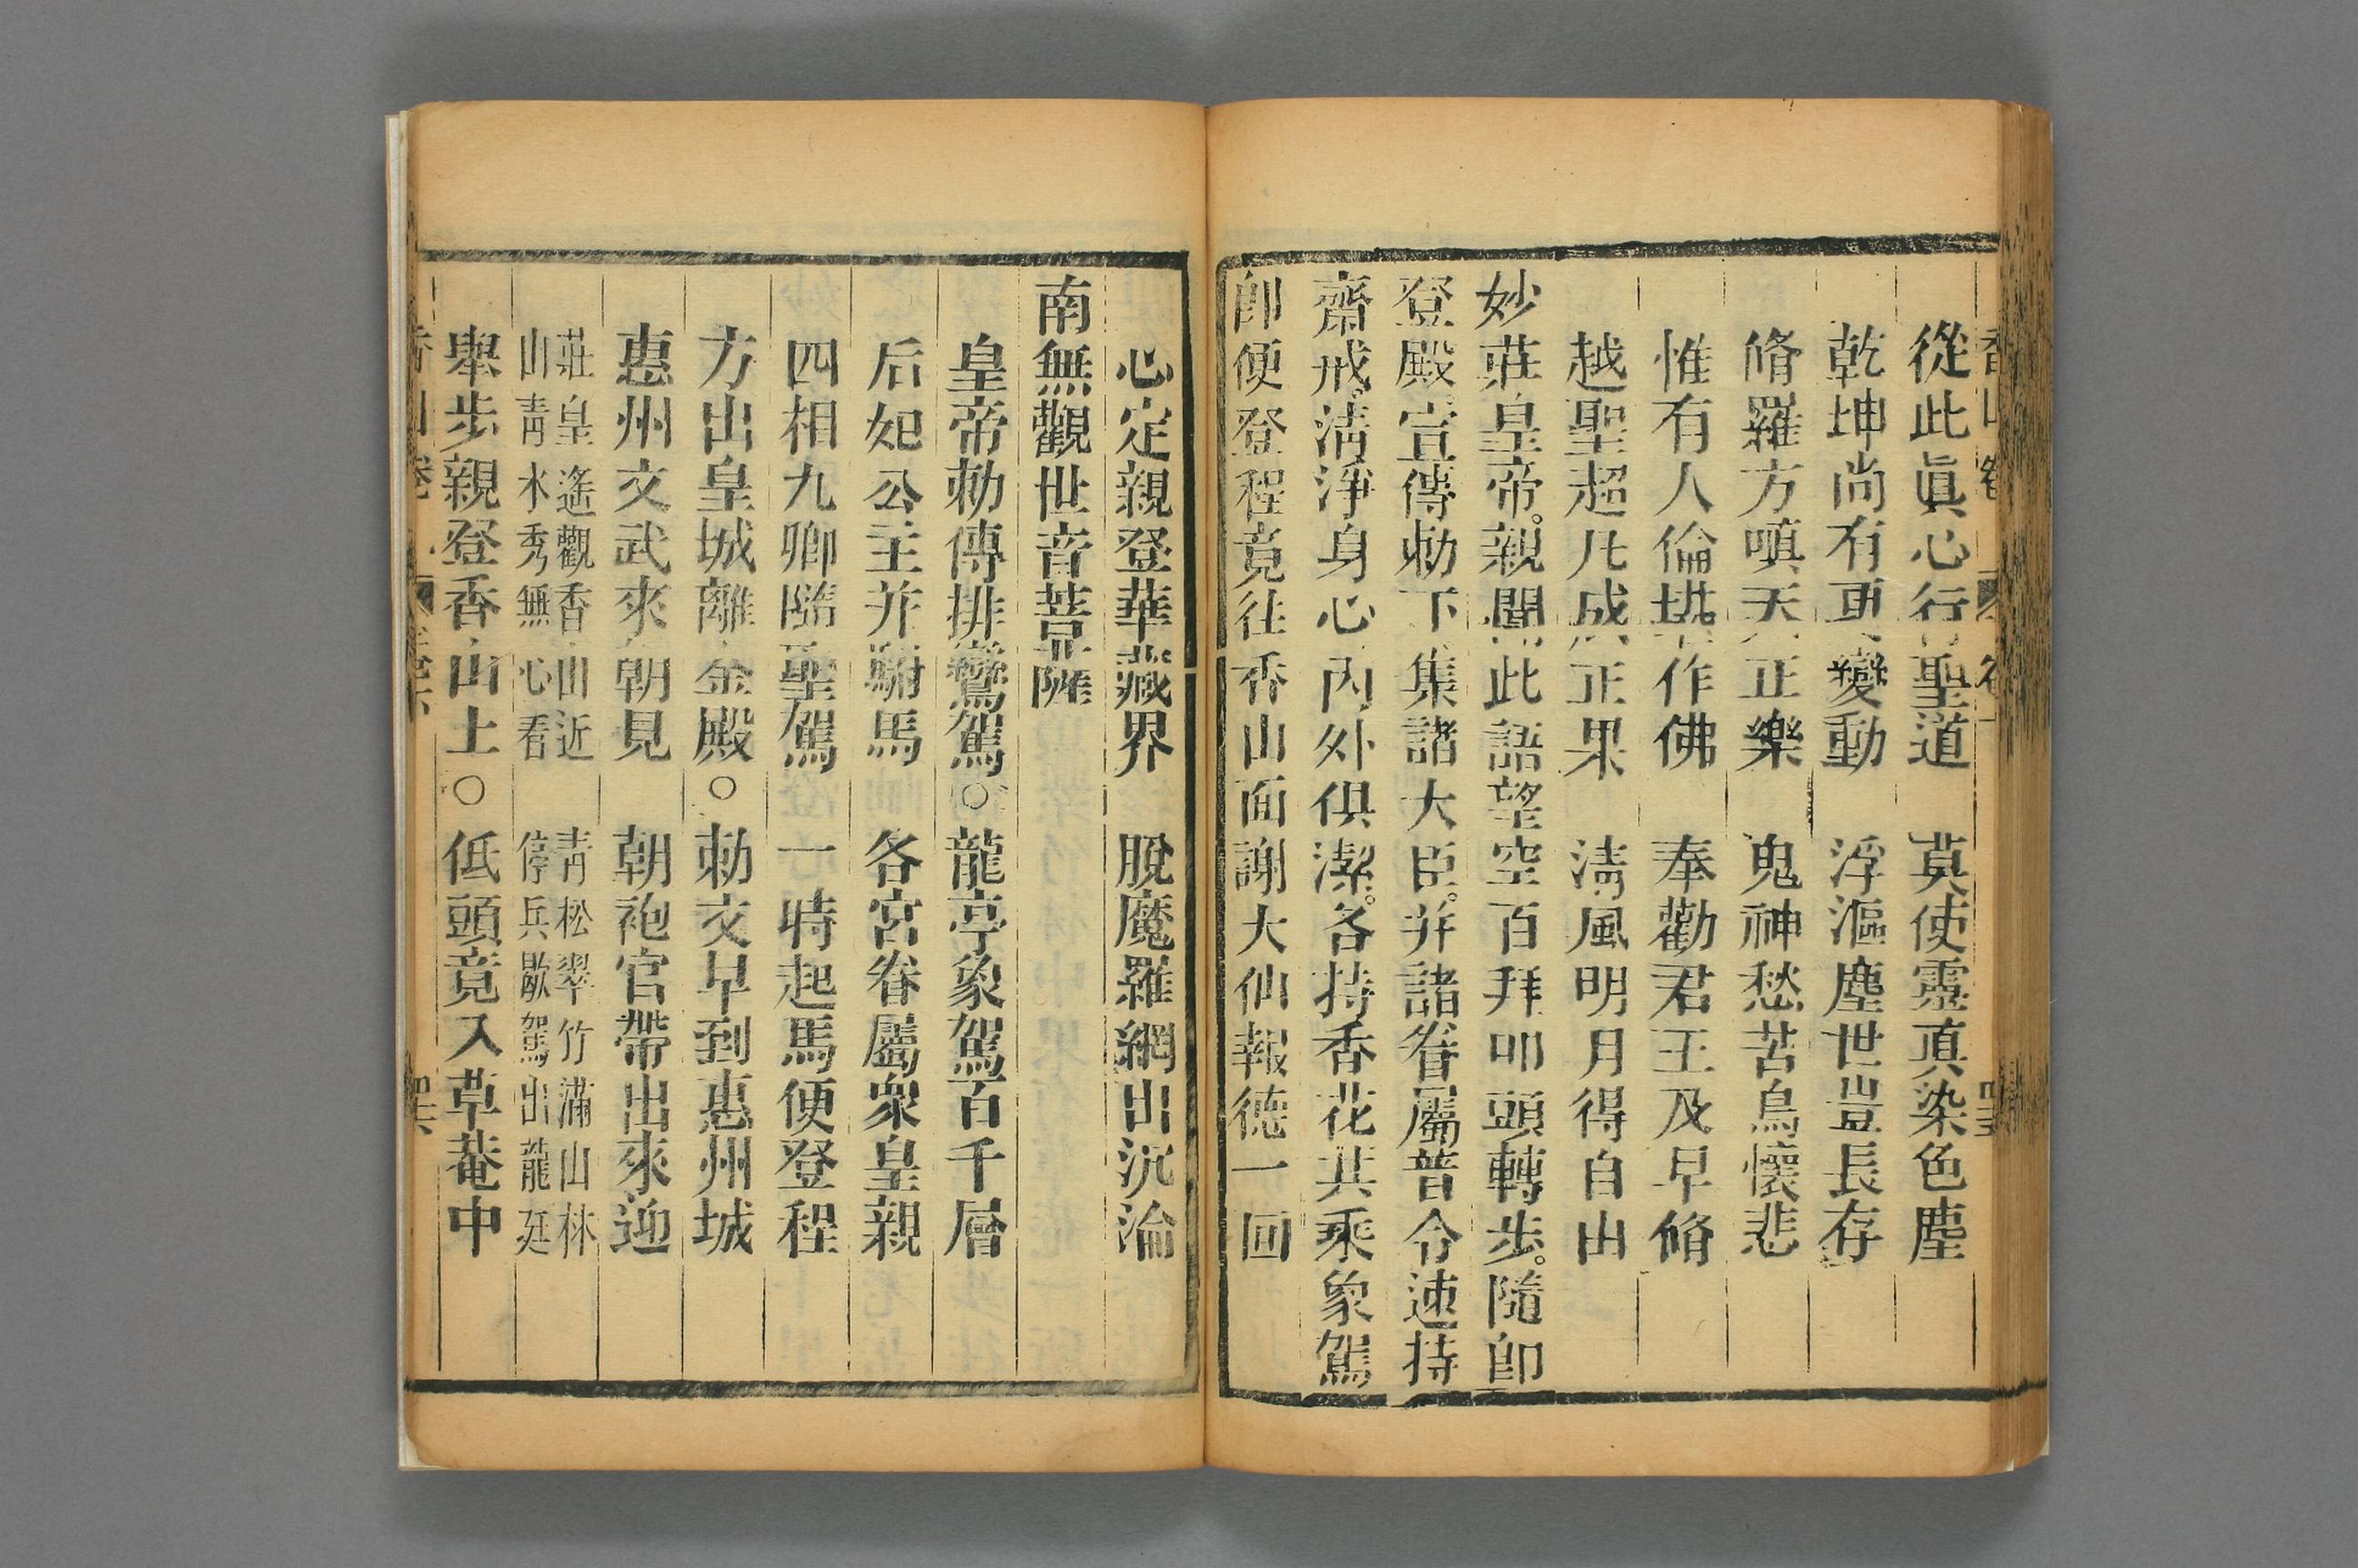 從此眞心行聖道　莫使靈眞染色塵
乾坤尚有更變動　浮漚塵世豈長存
脩羅方嗔天正樂　鬼神愁苦鳥懷悲
惟有人倫堪作佛　奉勸君王及早脩
越聖超凡成正果　淸風明月得自由
妙莊皇帝。親聞此語望空百拜叩頭轉步。隨卽
登殿。宣傳勅下集諸大臣。并諸眷屬普令速持
齋戒。淸淨身心內外俱潔。各持香花共乘象駕
卽便登程竟往香山面謝大仙報德一回
心定親登華藏界　脫魔羅網出沉淪
南無觀世音菩薩
皇帝勅傳排鸞駕○龍亭象駕百千層
后妃公主并駙馬　各宮眷屬衆皇親
四相九卿隨聖駕　一時起馬便登程
方出皇城離金殿○勅文早到惠州城
惠州文武來朝見　朝袍官帶出來迎
莊皇遙觀香山近　靑松翠竹滿山林
山靑水秀無心看　停兵歇駕出龍廷
舉步親登香山上○低頭竟入草菴中